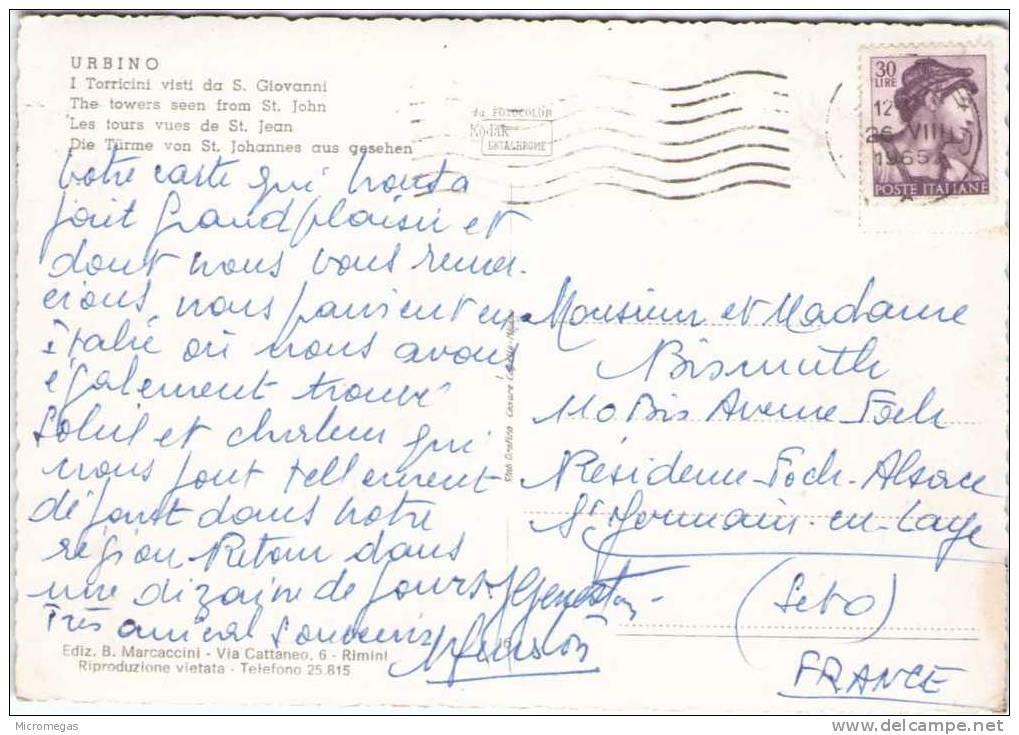 URBINO
I Torricini visti da S. Giovanni
The towers seen from St. John
Les tours vues de St. Jean
Die Türme von St. Johannes aus gesehen
da FOTOCOLOR
Kodak
EKTACHROME
30
LIRE
12
26 VIII
1965
POSTE ITALIANE
Votre carte qui nous a
fait grand plaisir et
dont nous vous remer-
cions, nous parvient en
Italie où nous avons
également trouvé
soleil et chaleur qui
nous font tellement
défaut dans notre
région Retour dans
une dizaine de jours.
Très amical souvenir
Monsieur et Madame
Bismuth
110 Bis Avenue Foch
Résidence Foch-Alsace
St Germain-en-Laye
(Seto)
FRANCE
Ediz. B. Marcaccini - Via Cattaneo, 6 - Rimini
Riproduzione vietata - Telefono 25.815
Micromegas
delcampe.net